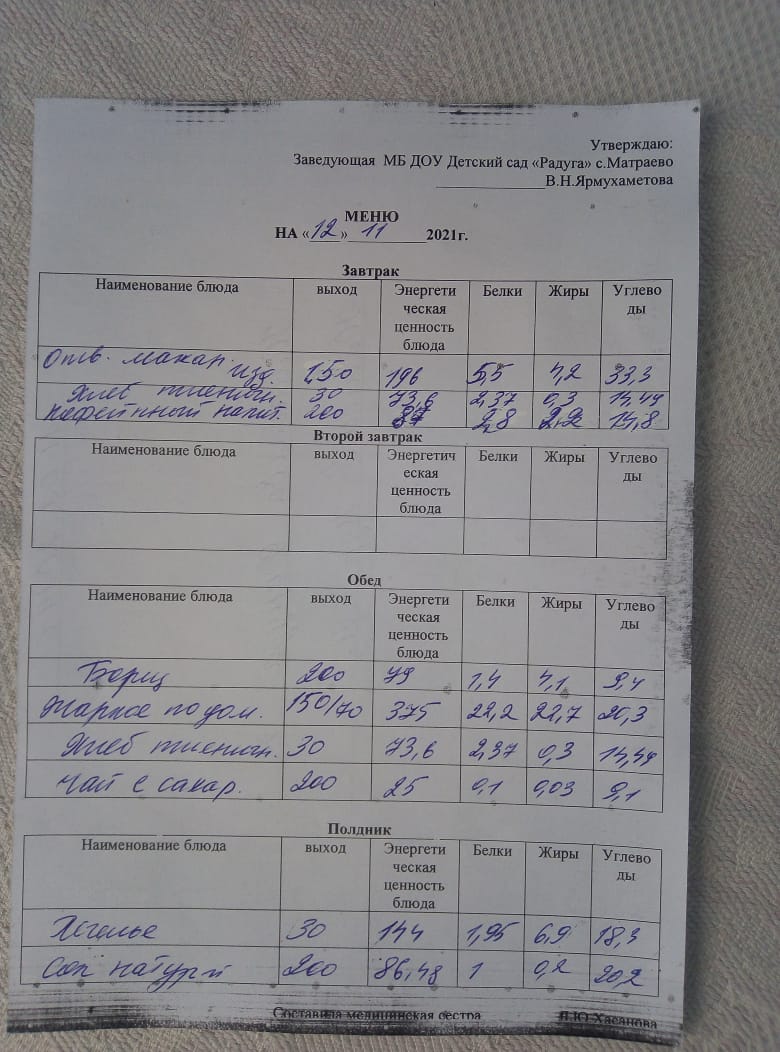 Утверждаю:
Заведующая МБ ДОУ Детский сад «Радуга» с.Матраево
______________В.Н.Ярмухаметова
МЕНЮ
НА « 12 » 11 2021г.
Завтрак
Наименование блюда выход Энергети Белки Жиры Углево
ческая ды
ценность
блюда
Отв. макар. изд. 150 196 5,5 4,2 33,3
Хлеб пшеничн. 30 73,6 2,37 0,3 14,49
Кофейнный напит. 200 87 2,8 2,2 14,8
Второй завтрак
Наименование блюда выход Энергетич Белки Жиры Углево
еская ды
ценность
блюда
Обед
Наименование блюда выход Энергети Белки Жиры Углево
ческая ды
ценность
блюда
Борщ 200 79 1,4 4,1 9,4
Жаркое по дом. 150/70 375 22,2 22,7 20,3
Хлеб пшеничн. 30 73,6 2,37 0,3 14,49
Чай с сахар. 200 25 0,1 0,03 9,1
Полдник
Наименование блюда выход Энергети Белки Жиры Углево
ческая ды
ценность
блюда
30 144 1,95 6,9 18,3
Сок натур 200 86,48 1 0,2 20,2
Составила медицинская сестра Л.Ю.Хасанова